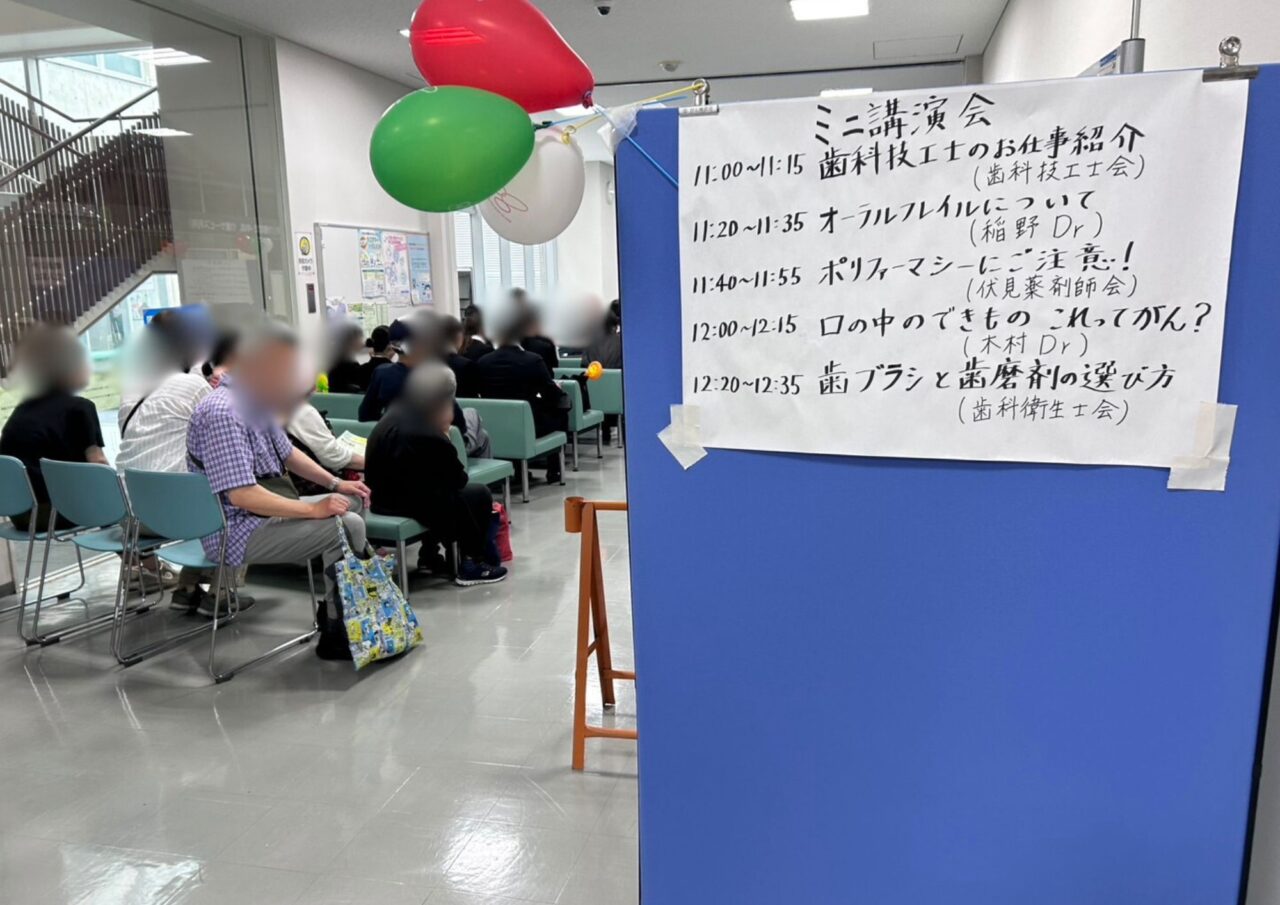 ミニ講演会
11:00~11:15 歯科技工士のお仕事紹介
(歯科技工士会)
11:20~11:35 オーラルフレイルについて
(稲野 Dr)
11:40~11:55 ポリファーマシーにご注意!
(伏見薬剤師会)
12:00~12:15 口の中のできもの これってがん?
(木村 Dr)
12:20~12:35 歯ブラシと歯磨剤の選び方
(歯科衛生士会)